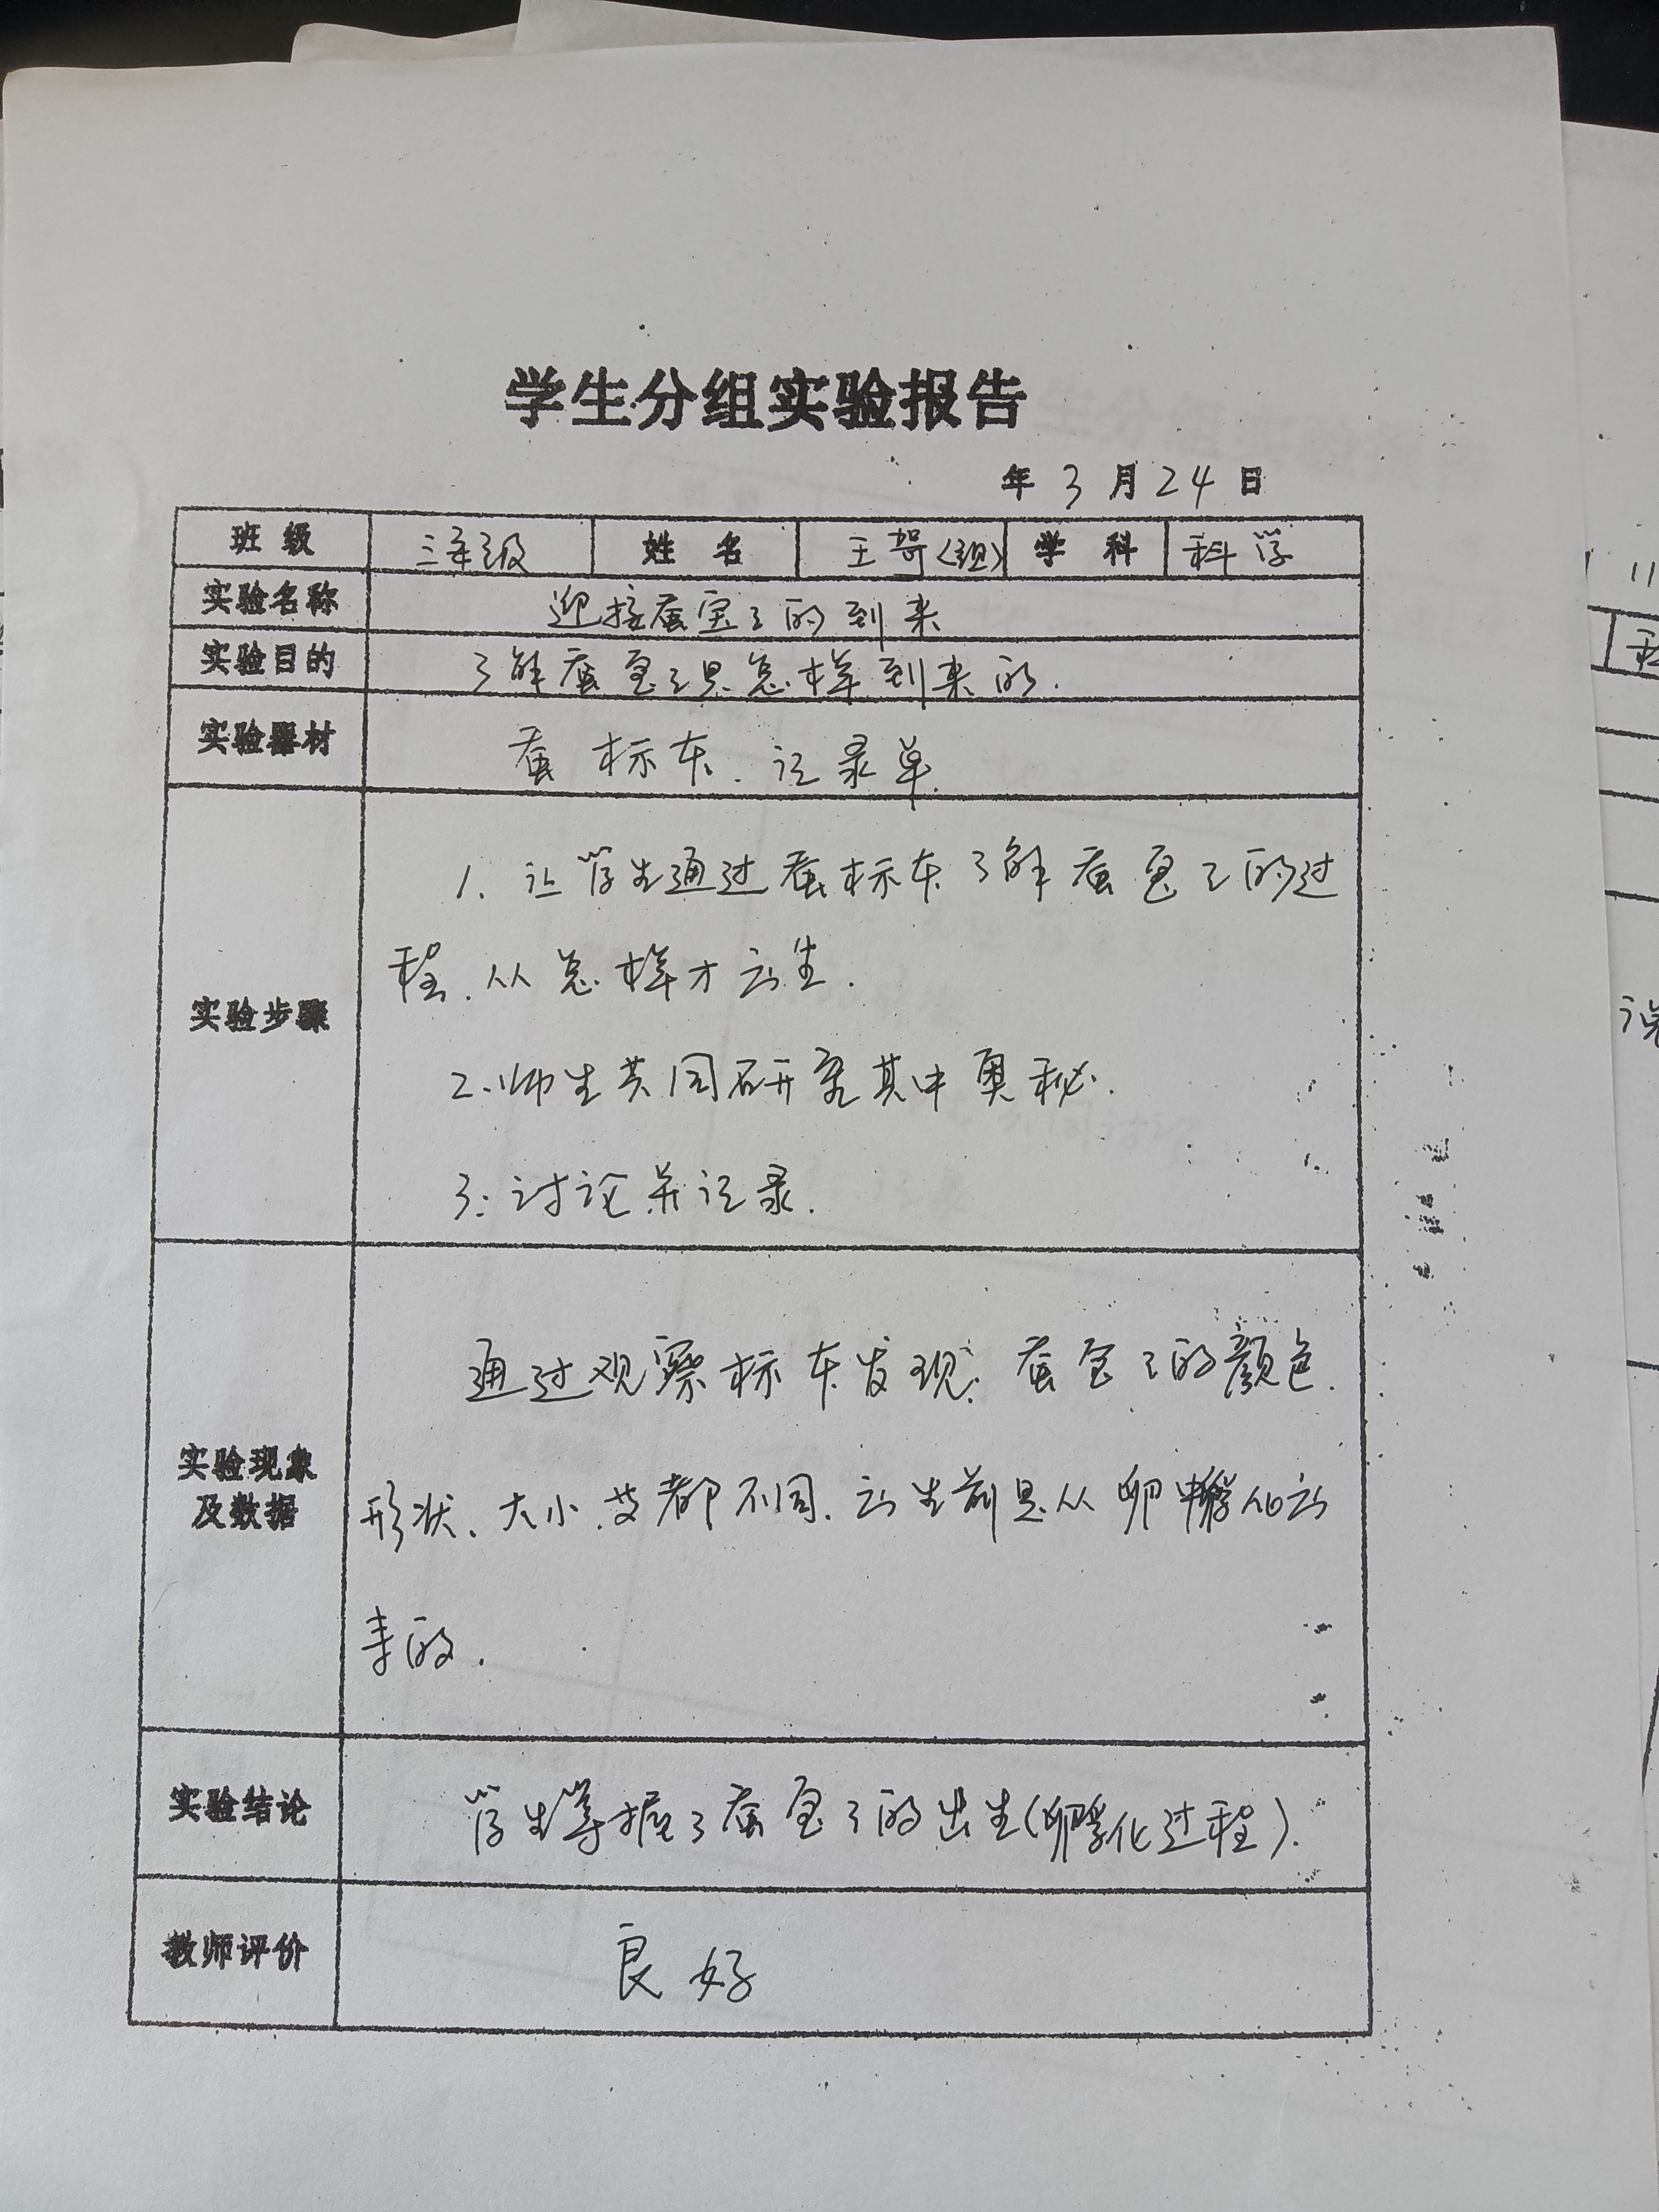 学生分组实验报告
年 3 月 24 日
班级 三年级 姓名 王 (组) 学科 科学
实验名称 迎接蚕宝宝的到来
实验目的 了解蚕宝宝是怎样到来的.
实验器材 蚕标本、记录单.
实验步骤
1、让学生通过蚕标本了解蚕宝宝的过
程、从怎样才出生.
2、师生共同研究其中奥秘.
3:讨论并记录.
实验现象
及数据
通过观察标本发现:蚕宝宝的颜色、
形状、大小、 都不同.出生前是从卵中孵化出
来的.
实验结论 学生掌握了蚕宝宝的出生(孵化过程).
教师评价 良好